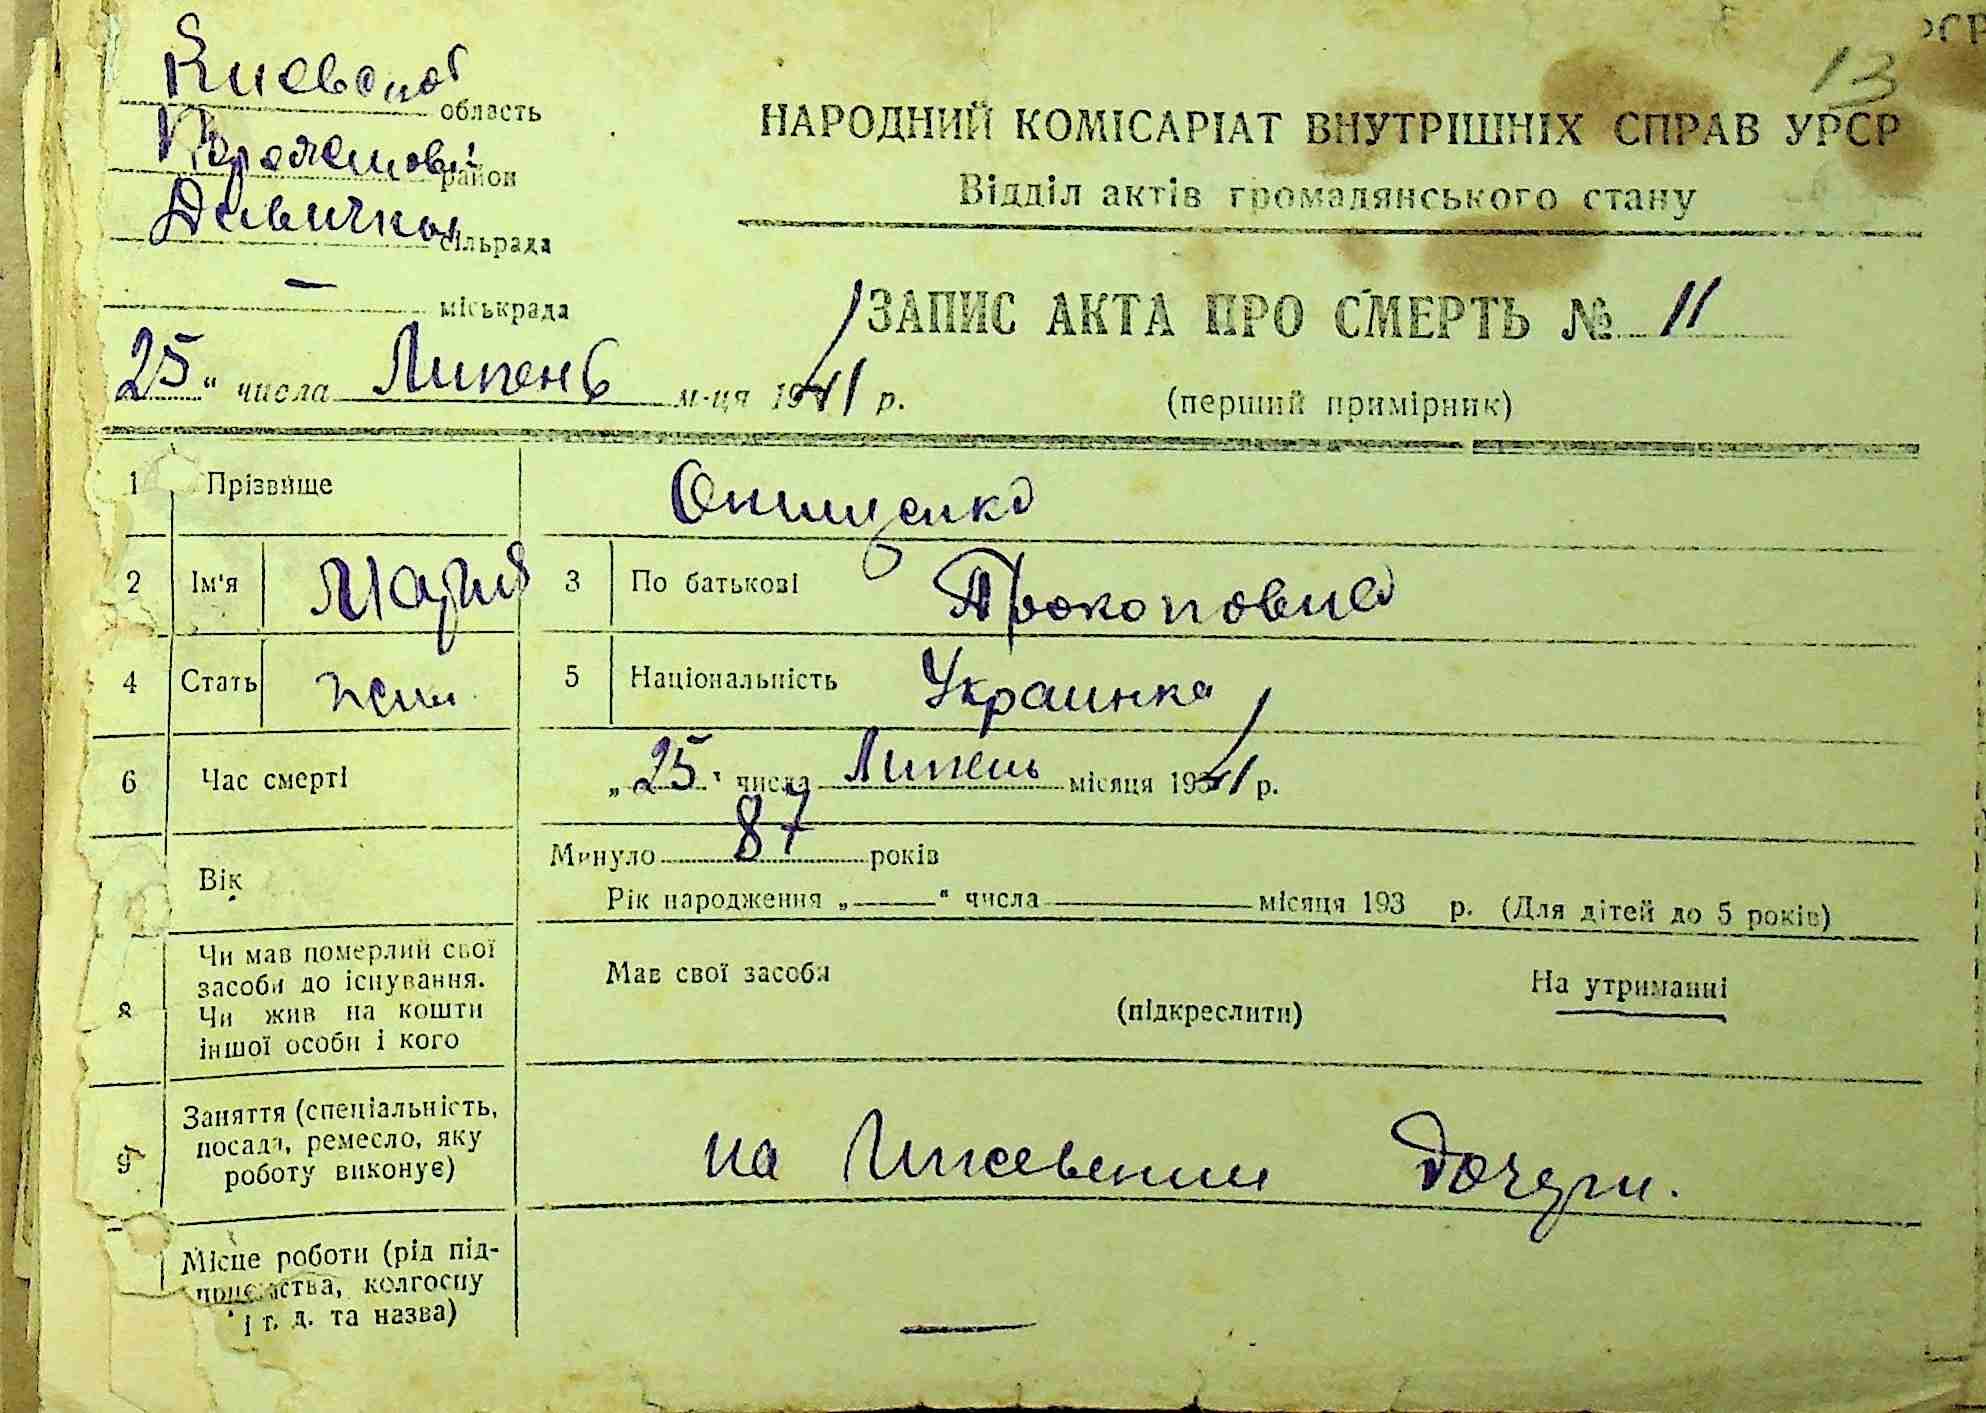 13
Киевской область
район
Девичк сільрада
— міськрада
НАРОДНИЙ КОМІСАРІАТ ВНУТРІШНІХ СПРАВ УРСР
Відділ актів громадянського стану
ЗАПИС АКТА ПРО СМЕРТЬ № 11
25 " числа Липень м-ця 1941 р.
(перший примірник)
1 Прізвище Онищенко
2 Ім'я Мария 3 По батькові Прокоповна
4 Стать жен 5 Національність Украинка
6 Час смерті „ 25 " числа Липень місяця 1941 р.
Вік Минуло 87 років
Рік народження „ — " числа — місяця 193 р. (Для дітей до 5 років)
8 Чи мав померлий свої
засоби до існування.
Чи жив на кошти
іншої особи і кого
Мав свої засоби
(підкреслити)
На утриманні
9 Заняття (спеціальність,
посада, ремесло, яку
роботу виконує)
на Иждевении дочери.
Місце роботи (рід під-
приємства, колгоспу
і т. д. та назва)
—